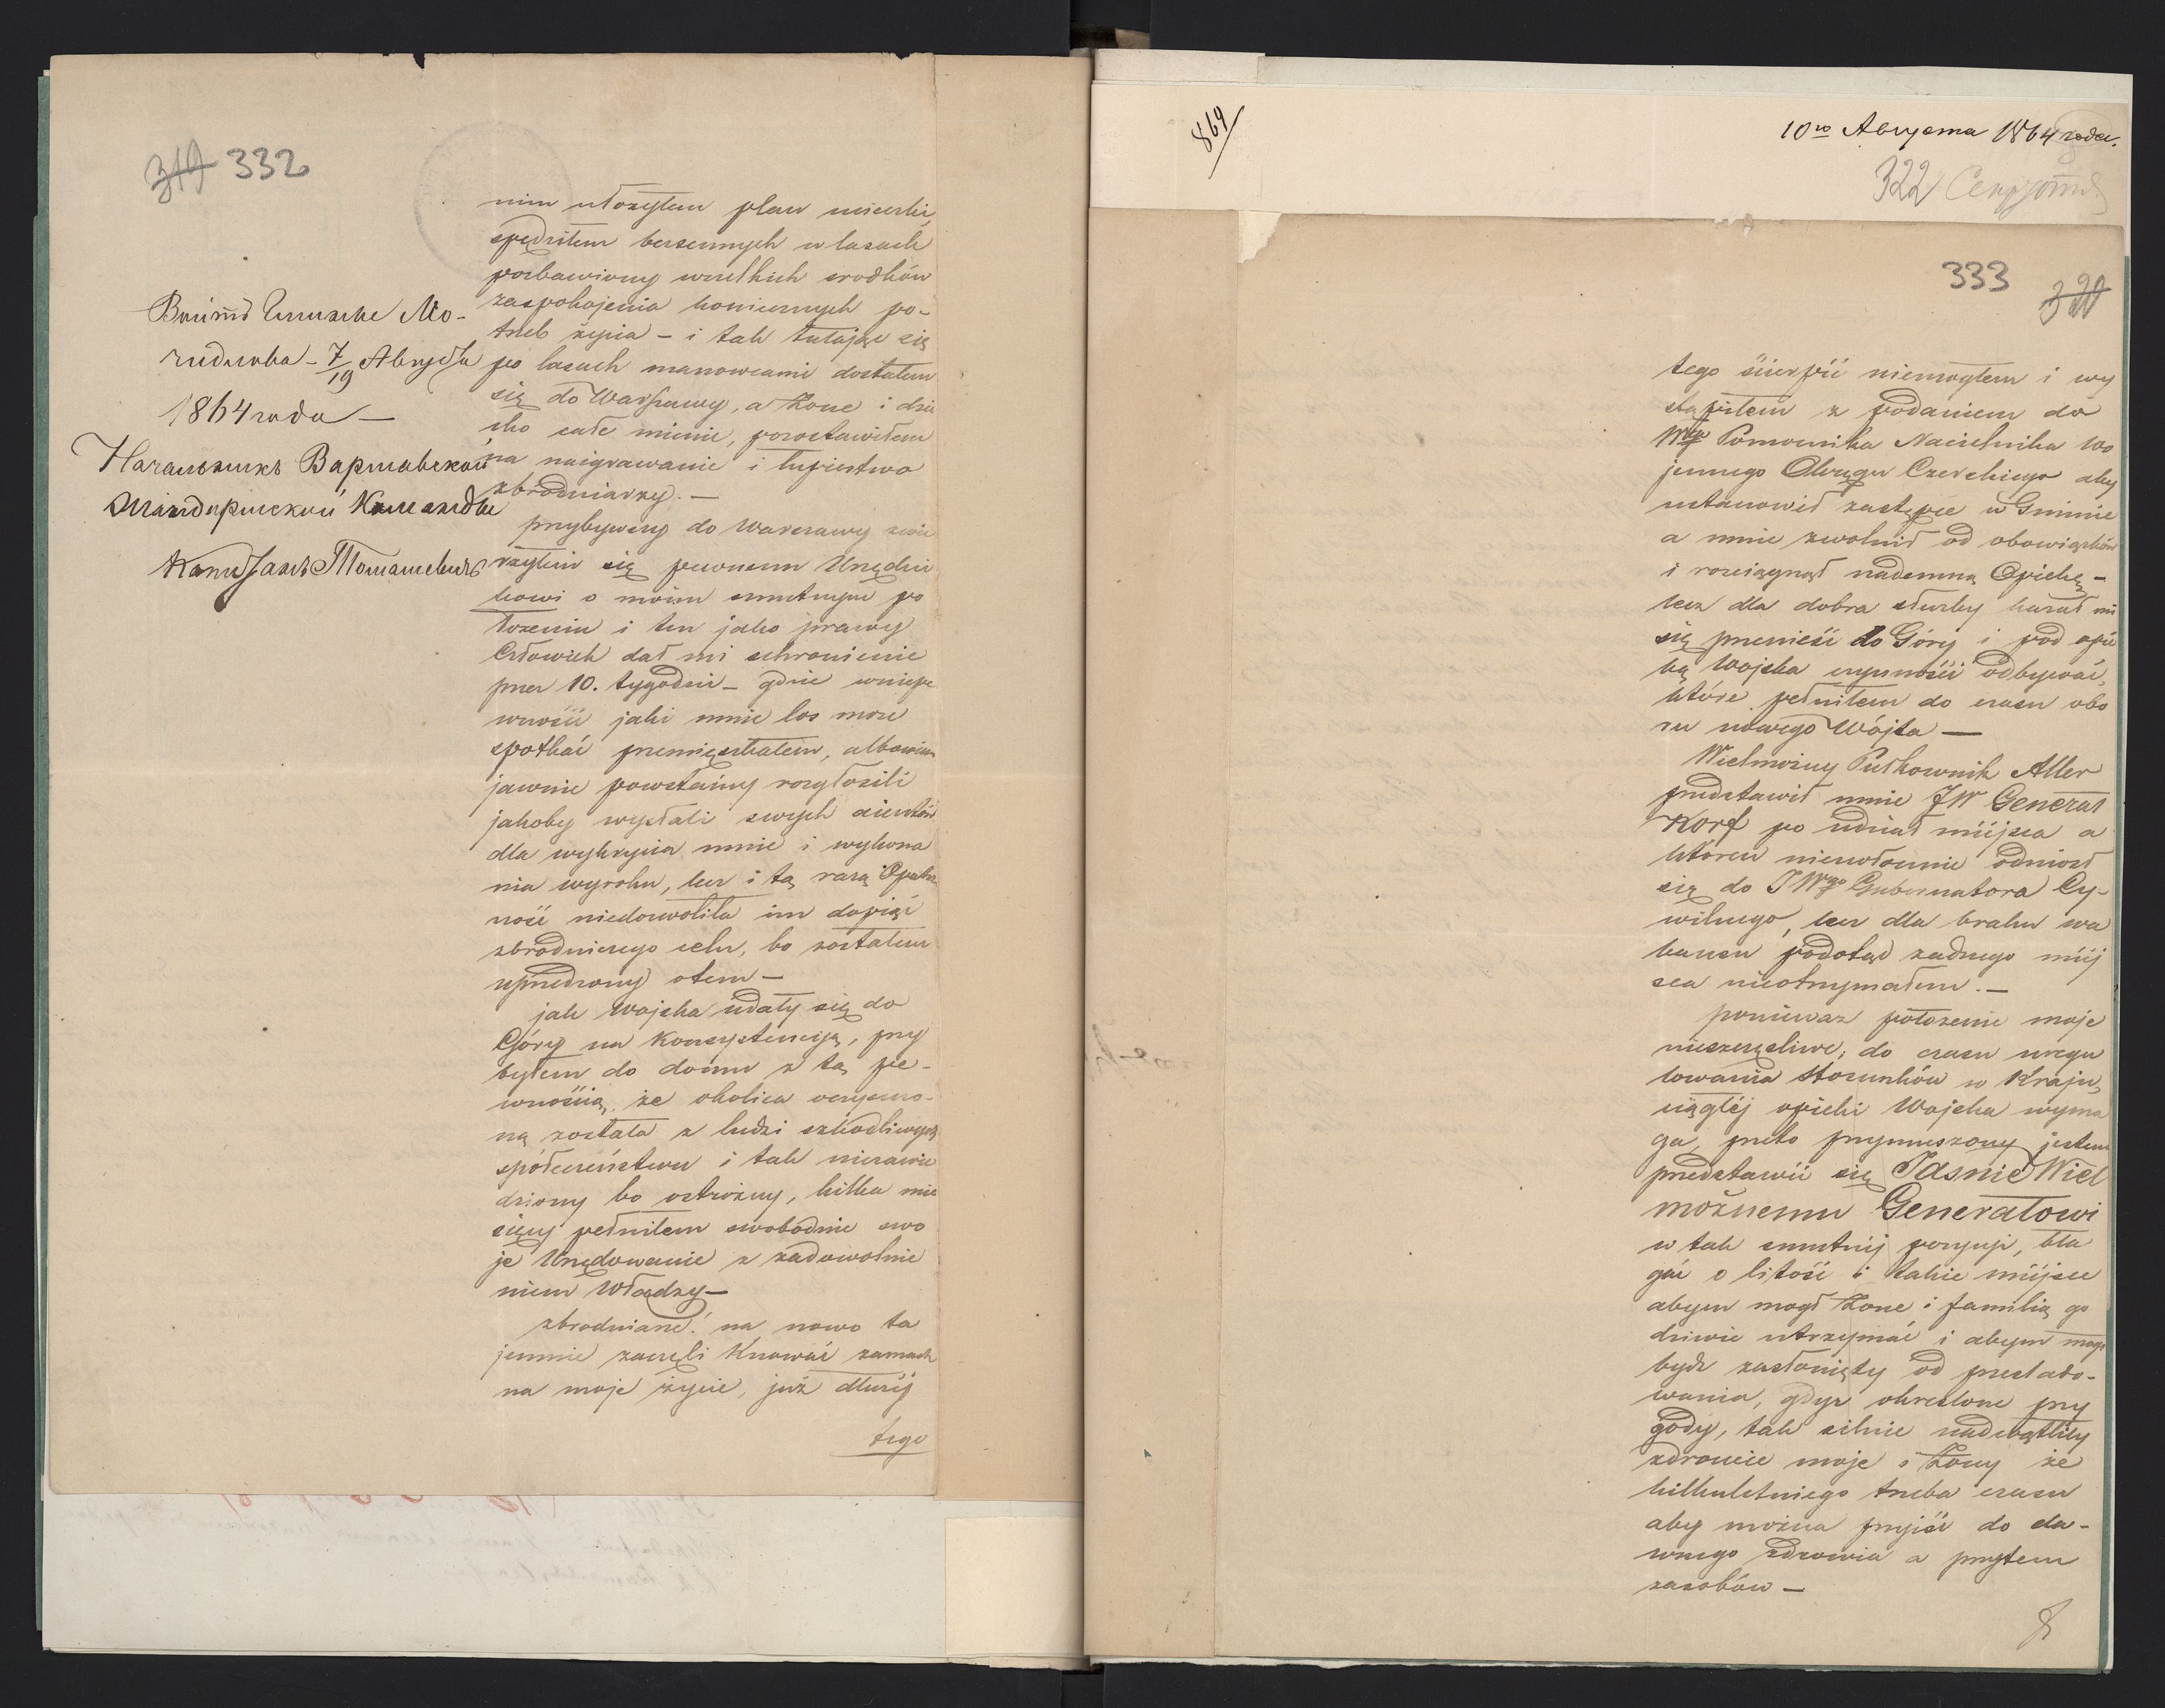 332
Войтъ Гмины Мо-
7/19 Августа
1864 года —
Начальникъ Варшавской
Жандармской Команды
Капитанъ
nim ułożyłem plan ucieczki,
spędziłem bezsennych w lasach
pozbawiony wszelkich srodków
zaspokojenia koniecznych po-
trzeb życia – i tak tułając się
po lasach manowcami dostałem
się do Warszawy, a żone i dzie
cko całe mienie, pozostawiłem
na naigrawanie i łupiestwo
zbrodniarzy. —
przybywszy do Warszawy zwie
rzyłem się pewnemu Urzędni
kowi o moim smutnym po
łożeniu i ten jako prawy
Człowiek dał mi schronienie
przez 10. tygodni – gdzie w niepe
wności jaki mnie los może
spotkać przemięszkałem, albowiem
jawnie powstańcy rozgłosili
jakoby wysłali swych
dla wykrycia mnie i wykona
nia wyroku, lecz i tą razą Opatrz
ność niedozwoliła im dopiąć
zbrodniczego celu, bo zostałem
uprzedzony otem —
jak Wojska udały się do
Góry na Konsystencyą, przy
byłem do domu z tą pe-
wnością, że okolica oczyszczo-
ną została z ludzi szkodliwych
społeczeństwu i tak niezawie
dziony bo ostrożny, kilka mie
sięcy pełniłem swobodnie swo
je Urzędowanie z zadowolnie
niem Władzy —
zbrodniarze! na nowo ta
jemnie zaczęli Knować zamach
na moje życie, już dłużej
tego
869
10го Августа 1864 года.
322
333
320
tego ścierpić niemogłem i wy
stąpiłem z podaniem do
Wgo Pomocnika Naczelnika Wo
jennego Okręgu Czerskiego aby
ustanowił zastępce w Gminie
a mnie zwolnił od obowiązków
i rozciągnął nademną Opiekę –
lecz dla dobra służby kazał mi
się przenieść do Góry i pod opie
ką Wojska czynności odbywać,
które pełniłem do czasu obo
ru nowego Wójta —
Wielmożny Pułkownik Aller
przedstawił mnie JW Generał
Korf po udział miejsca a
któren niezwłocznie odniosł
się do JWgo Gubernatora Cy-
wilnego, lecz dla braku wa
kansu podotąd żadnego miej
sca nieotrzymałem. —
ponieważ położenie moje
nieszczęśliwe, do czasu uregu
lowania stosunków w Kraju,
ciągłéj opieki Wojska wyma
ga, przeto przymuszony jestem
przedstawić się Jaśnie Wiel
możnemu Generałowi
w tak smutnej pozycji, bła
gać o litość i takie miejsce
abym mogł żone i familią go
dziwie utrzymać i abym mogł
bydź zasłonięty od przesłado-
wania, gdyż okreslone przy
gody, tak silnie nadwątliły
zdrowie moje i żony że
kilkuletniego trzeba czasu
aby można przyjść do da-
wnego zdrowia a przytem
zasobów —